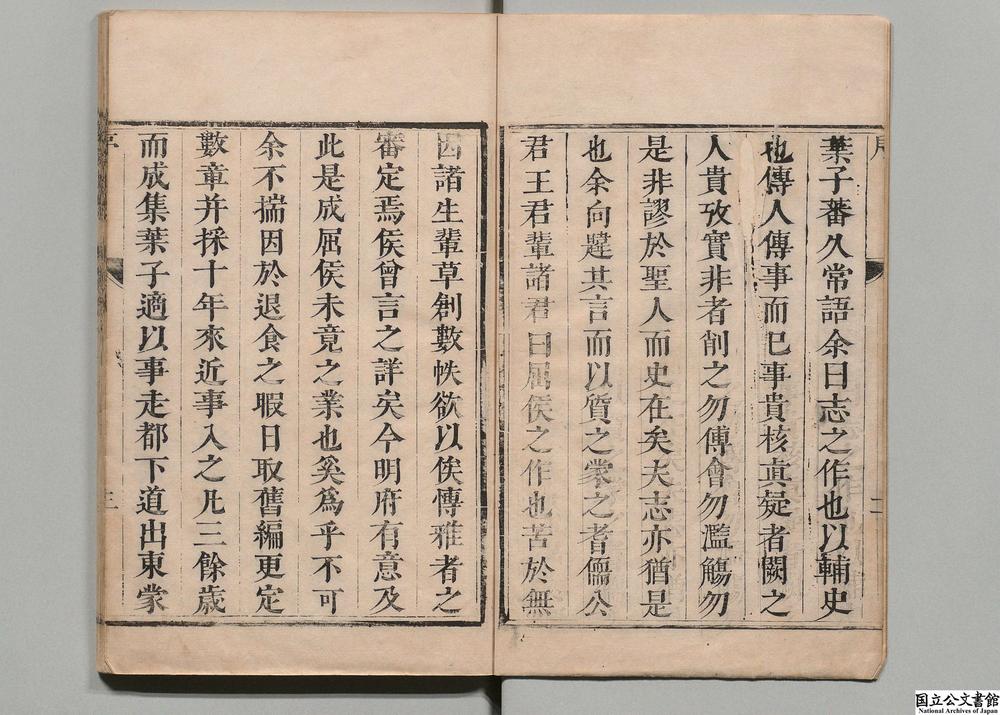 葉子蕃久常語余曰志之作也以輔史
也傳人傳事而已事貴核眞疑者闕之
人貴攷實非者削之勿傅會勿濫觴勿
是非謬於聖人而史在矣夫志亦猶是
也余向韙其言而以質之蒙之耆儒公
君王君輩諸君曰屈侯之作也苦於無
因諸生輩草創數帙欲以俟博雅者之
審定焉侯曾言之詳矣今明府有意及
此是成屈侯未竟之業也奚爲乎不可
余不揣因於退食之暇日取舊編更定
數章并採十年來近事入之凡三餘歲
而成集葉子適以事走都下道出東蒙
序
二
三
国立公文書館
National Archives of Japan